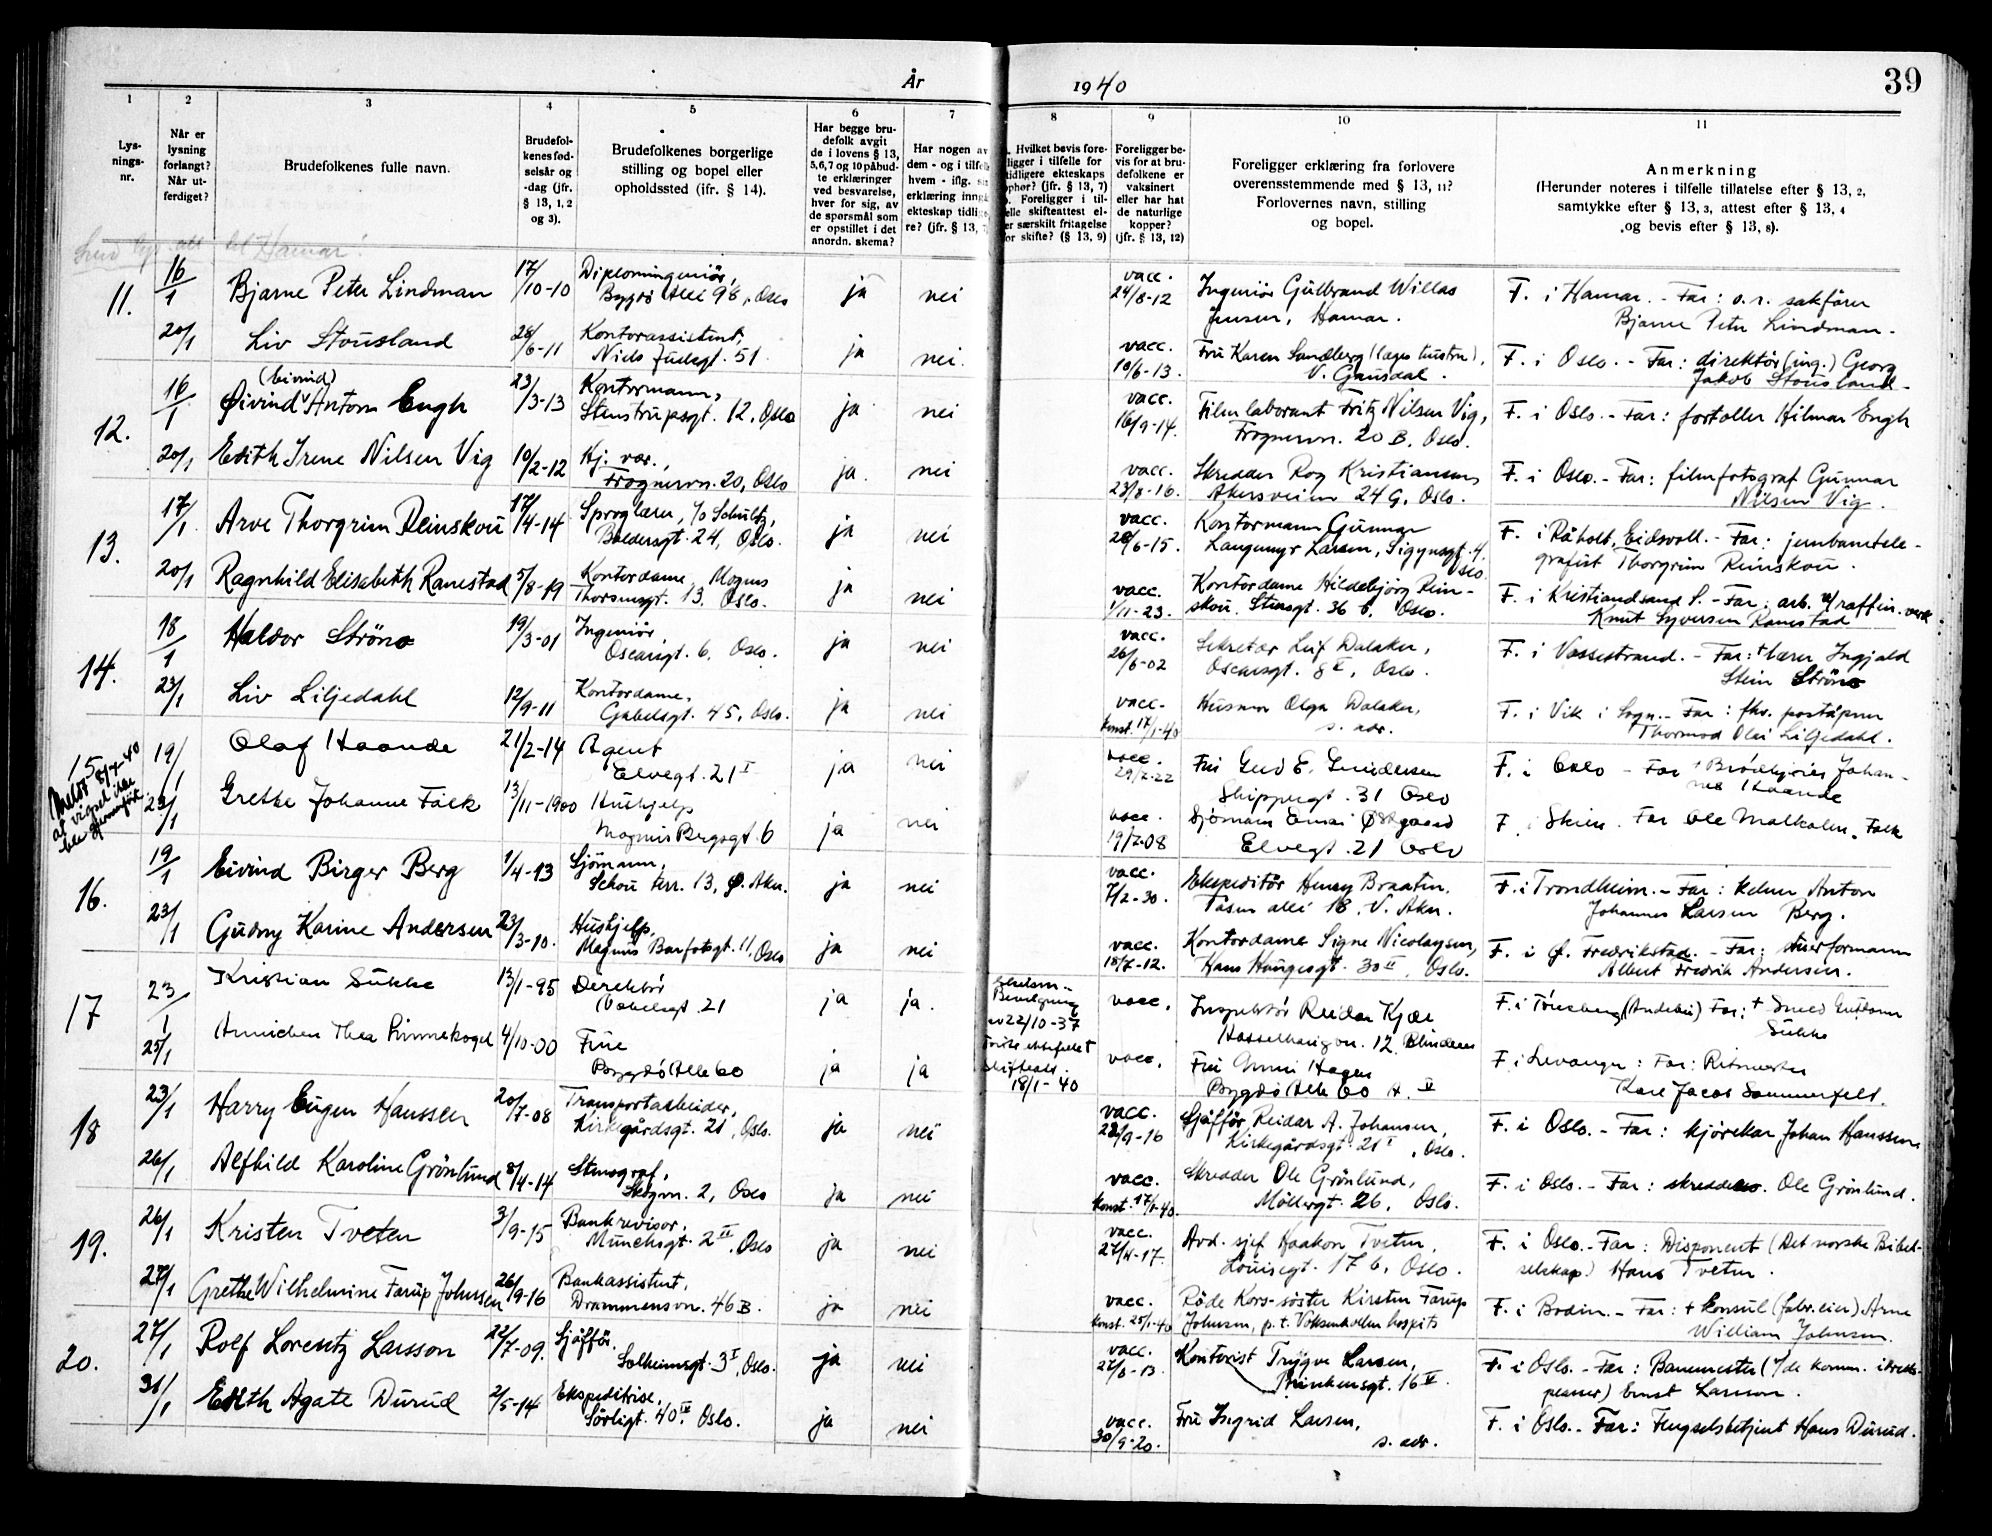 År 1940 39
1 2 3 4 5 6 7 8 9 10 11
Lys-
nings-
nr.
Når er
lysning
forlangt?
Når ut-
ferdiget?
Brudefolkenes fulle navn.
Brudefol-
kenes fød-
selsår og
-dag (jfr.
§ 13, 1, 2
og 3).
Brudefolkenes borgerlige
stilling og bopel eller
opholdssted (ifr. § 14).
Har begge bru-
defolk avgit
de i lovens § 13,
5,6,7 og 10 påbud-
te erklæringer
ved besvarelse,
hver for sig, av
de spørsmål som
er opstillet i det
anordn. skema?
Har nogen av
dem - og i tilfelle
hvem - iflg. sin
erklæring inngå
ekteskap tidlige
re? (jfr. § 13, 7
. Hvilket bevis fore-
ligger i tilfelle for
tidligere ekteskaps
ophør? (jfr. § 13, 7)
. Foreligger i til-
elle skifteattest el-
er særskilt fritagelse
or skifte? (§ 13, 9)
Foreligger be-
vis for at bru-
defolkene er
vaksinert
eller har hat
de naturlige
kopper?
(jfr. § 13, 12)
Foreligger erklæring fra forlovere
overensstemmende med § 13, 11?
Forlovernes navn, stilling
og bopel.
Anmerkning
(Herunder noteres i tilfelle tillatelse efter § 13, 2,
samtykke efter § 13, 3, attest efter § 13, 4
og bevis efter § 13, 8).
Hamar.
11. 16/1 Bjarne Peter Lindman 17/10-10 Diplomingeniör, Bygdö Allé 96, Oslo ja nei vacc. 24/8-12 Ingeniör Gulbrand Willas Jensen, Hamar. F. i Hamar. - Far: o.r. sakförer Bjarne Peter Lindman.
20/1 Liv Stousland 28/6-11 Kontorassistent, Niels Juelsgt. 51 ja nei. vacc. 10/6-13. Fru Karen Sandberg (læges hustru), V. Gausdal. F. i Oslo. - Far: direktör (ing.) Georg Jakob Stousland.
12. 16/1 Øivind (Eivind) Anton Engh 23/3-13 Kontormann, Stenstrupsgt. 12, Oslo ja nei vacc. 16/9-14. Filmlaborant Fritz Nilsen Vig, Frognervn. 20 B, Oslo. F. i Oslo. - Far: fortoller Hilmar Engh
20/1 Edith Irene Nilsen Vig 10/2-12 Hj. vær., Frognervn. 20, Oslo ja. nei vacc. 23/8-16. Skredder Roy Kristiansen, Akersveien 24 G, Oslo. F. i Oslo. - Far: filmfotograf Gunnar Nilsen Vig.
13. 17/1 Arve Thorgrim Reinskou 17/4-14 Sproglærer, c/o Schultz, Baldersgt. 24, Oslo. ja nei vacc. 28/6-15. Kontormann Gunnar Langmyr Larsen, Sigynsgt. 4, Oslo. F. i Råholt, Eidsvoll. - Far: jernbanetele-grafist Thorgrim Reinskou.
20/1 Ragnhild Elisabeth Ranestad 5/8-19 Kontordame, Mogens Thorsensgt. 13, Oslo. ja nei vacc. 1/11-23. Kontordame Hildebjörg Rein-skou, Stensgt. 36 b, Oslo. F. i Kristiansand S. - Far: arb. v/ raffin. verk Knut Syversen Ranestad
14. 18/1 Haldor Ströno 19/3-01 Ingeniör, Oscarsgt. 6, Oslo. ja nei vacc. 26/6-02 Sekretær Leif Dalaker, Oscarsgt. 8 II, Oslo. F. i Vossestrand. - Far: + lærer Ingjald Stein Ströno
23/1 Liv Liljedahl 12/9-11 Kontordame, Gabelsgt. 45, Oslo. ja nei vacc. konst. 17/1-40 Husmor Olga Dalaker, s. adr. F. i Vik i Sogn. - Far: fhv. poståpner Thormod Olai Liljedahl.
15 Meldt 8/4-40 at vigsel ikke ble gjennemfört. 19/1 Olaf Haande 21/2-14 Agent Elvegt. 21 I ja nei vacc. 29/2-22 Fru Gerd E. Gundersen Skippergt. 31 Oslo F. i Oslo - Far + Brödkjörer Johan-nes Haande
23/1 Grethe Johanne Falk 13/11-1900 Hushjelp Magnus Bergsgt. 6 ja nei vacc. 19/2-08 Sjömann Einar Østgaard Elvegt. 21 Oslo F. i Skien. Far Ole Malkolm Falk
16. 19/1 Eivind Birger Berg 1/4-13 Sjömann, Schou terr. 13, Ø. Aker. ja nei vacc. 7/2-30. Ekspeditör Henry Braaten, Tåsen allé 18, V. Aker. F. i Trondheim. - Far: kelner Anton Johannes Larsen Berg.
23/1 Gudny Karine Andersen 23/3-10. Hushjelp, Magnus Barfotsgt. 11, Oslo ja nei vacc. 18/7-12. Kontordame Signe Nicolaysen, Hans Haugesgt. 30 II, Oslo. F. i Ø. Fredrikstad. - Far: stuerformann Albert Fredrik Andersen.
17 23/1 Kristian Sukke 13/1-95 Direktör 21 ja ja. Bevilgning av 22/10-37 vacc. Inspektör Reidar Kjær Hasselhaugvn. 12, Blindern F. i Tönsberg (Andebu) Far: + Smed Guttorm Sukke
25/1 Anniken Thea Rinnekogel 4/10-00 Frue Bygdö Alle 60 ja ja skifteatt. 18/1-40 vacc. Fru Unni Hagen Bygdö Alle 60 A. IV F. i Levanger: Far: Ritmester Kare Jacob Sommerfelt.
18 23/1 Harry Eugen Hanssen 20/7-08 Transportarbeider, Kirkegårdsgt. 21, Oslo. ja nei vacc. 22/9-16 Sjåfför Reidar A. Johansen, Kirkegårdsgt. 21 I, Oslo. F. i Oslo. - Far: kjörekar Johan Hanssen
26/1 Alfhild Karoline Grönlund 8/4-14 Stenograf, Skogvn. 2, Oslo ja nei vacc. konst. 17/1-40. Skredder Ole Grönlund, Möllergt. 26, Oslo. F. i Oslo. - Far: skredder. Ole Grönlund.
19. 26/1 Kristen Tveten 3/9-15 Bankrevisor, Munchsgt. 2 II, Oslo ja nei vacc. 27/4-17. Avd. sjef Haakon Tveten, Louisesgt. 17 b, Oslo. F. i Oslo. - Far: Disponent (Det norske Bibel-selskap) Hans Tveten.
27/1 Grethe Wilhelmine Farup Johnsen 26/9-16 Bankassistent, Drammensvn. 46 B. ja nei vacc. konst. 25/1-40 Röde Kors-söster Kirsten Farup Johnsen, p.t. Voksenkollen hospits F. i Bodin. - Far: + konsul (fabr. eier) Arne William Johnsen.
20. 27/1 Rolf Lorentz Larsson 22/7-09. Sjåfför, Solheimsgt. 3 I, Oslo. ja nei vacc. 27/6-13 Kontorist Trygve Larsen, Brinkensgt. 16 IV. F. i Oslo. - Far: Banemester (v/ de komm. idretts-plasser) Ernst Larsson.
31/1 Edith Agate Durud 2/5-14 Ekspeditrise, Sörligt. 40 IV, Oslo. ja nei vacc. 30/9-20. Fru Ingrid Larsen, s. adr. F. i Oslo. - Far: Fengselsbetjent Hans Durud.